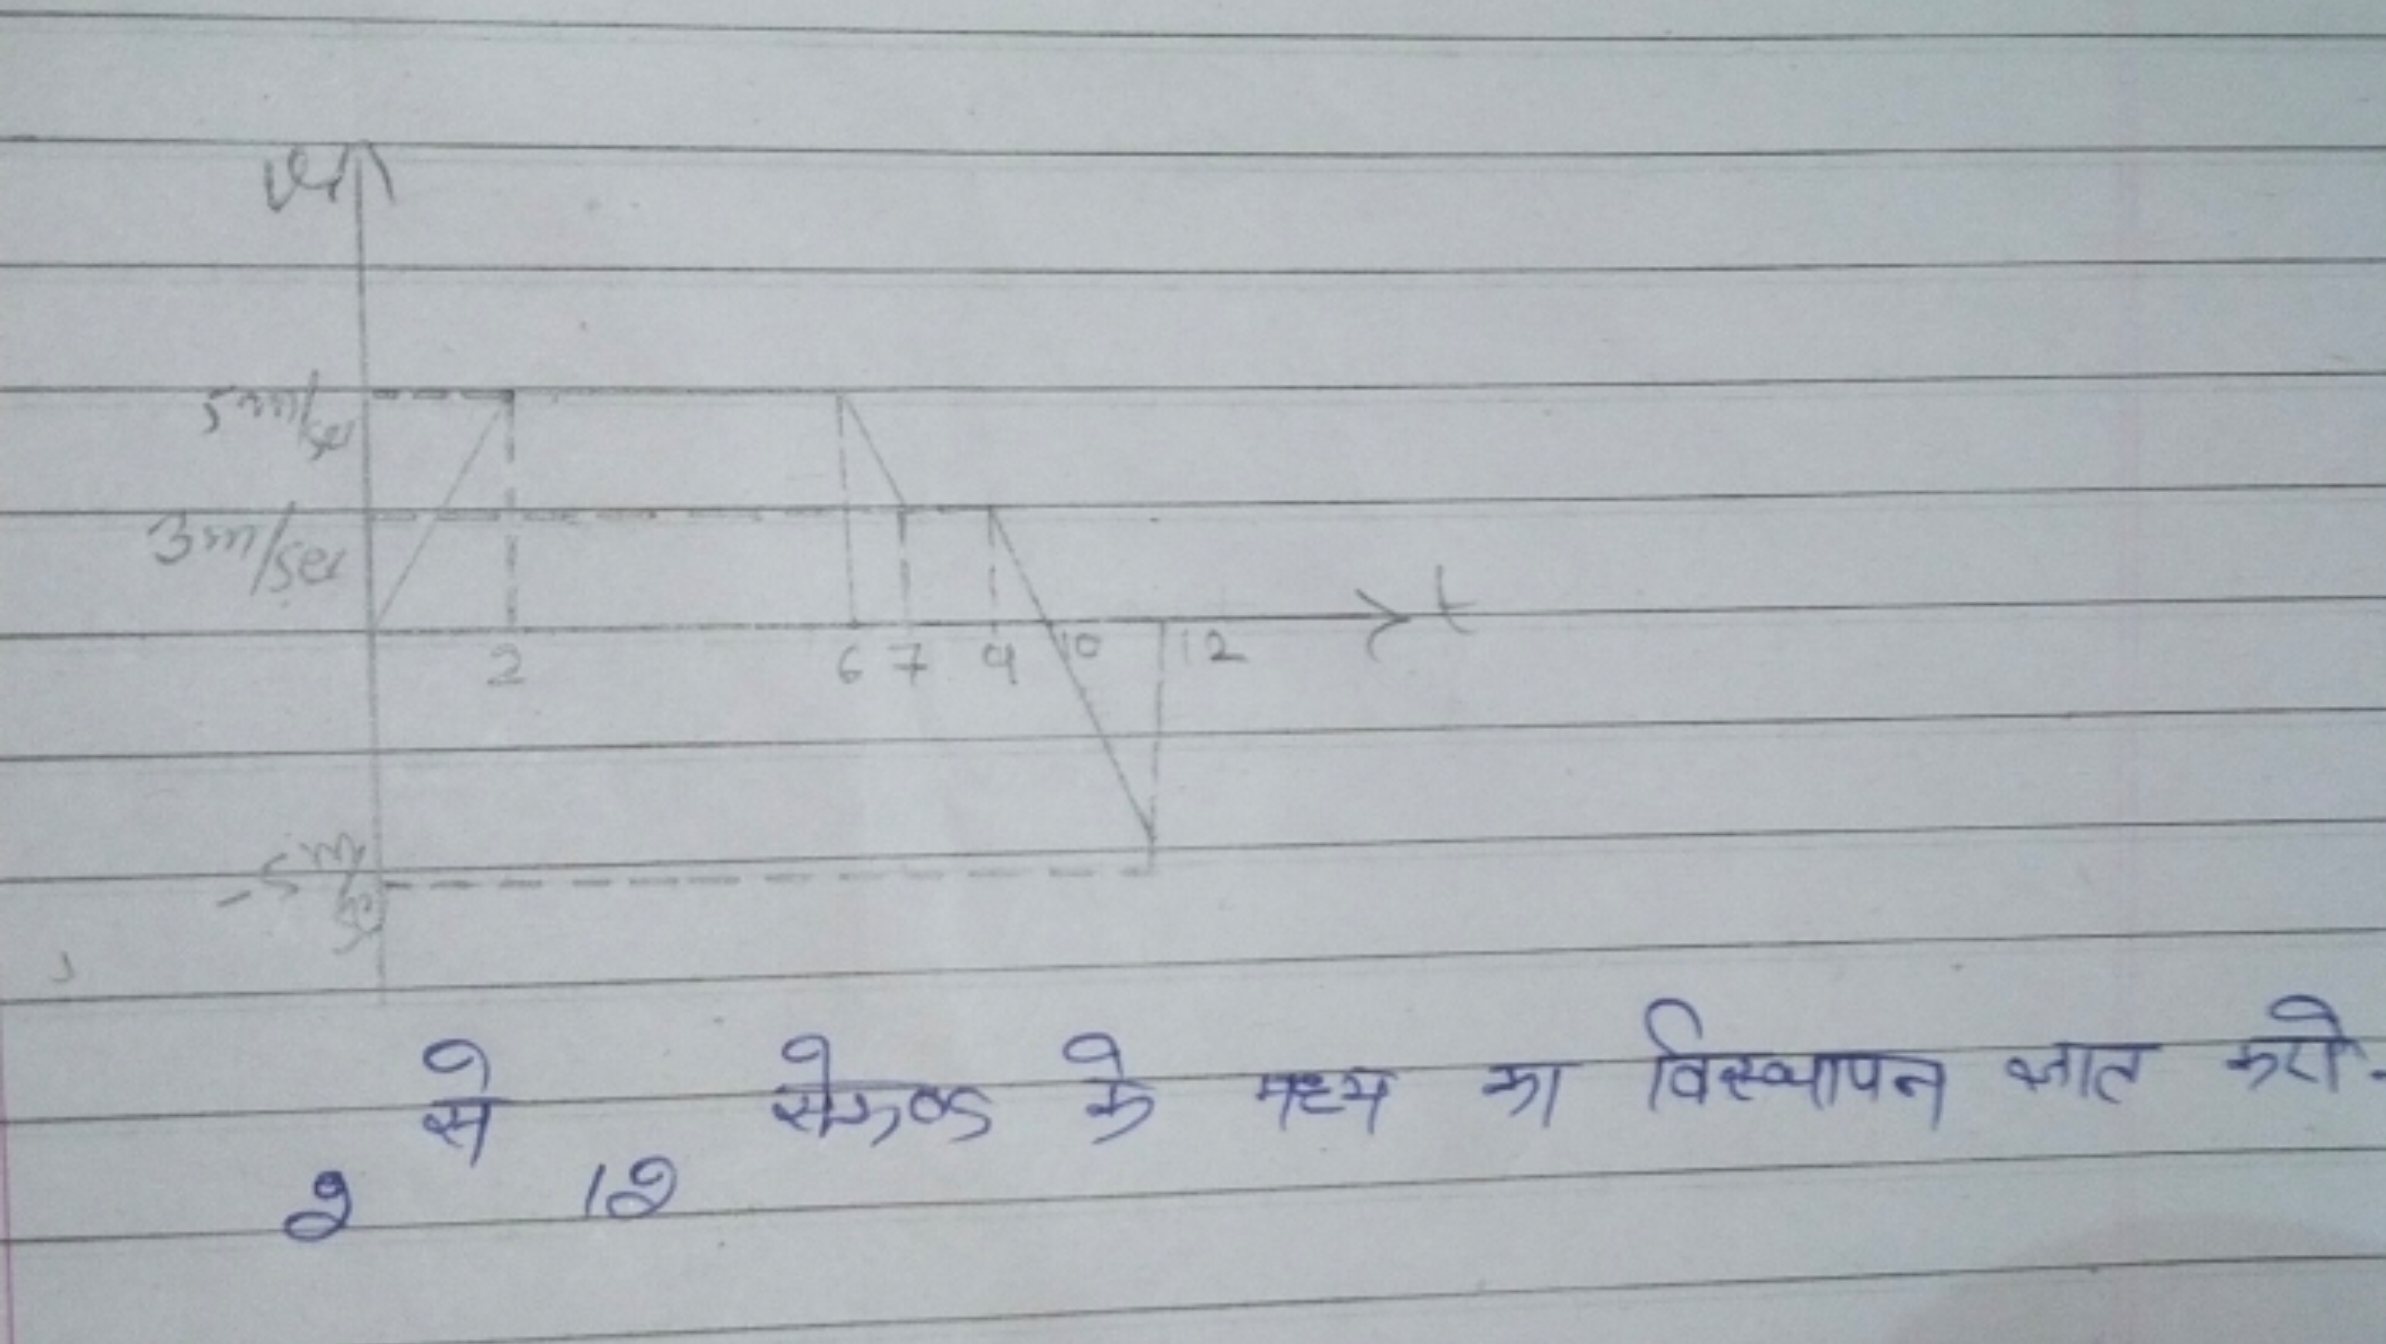 v
5m/sec
3m/sec
t
2 6 7 9 10 12
-5 m/sec
2 से 12 सेकण्ड के मध्य का विस्थापन ज्ञात करो.